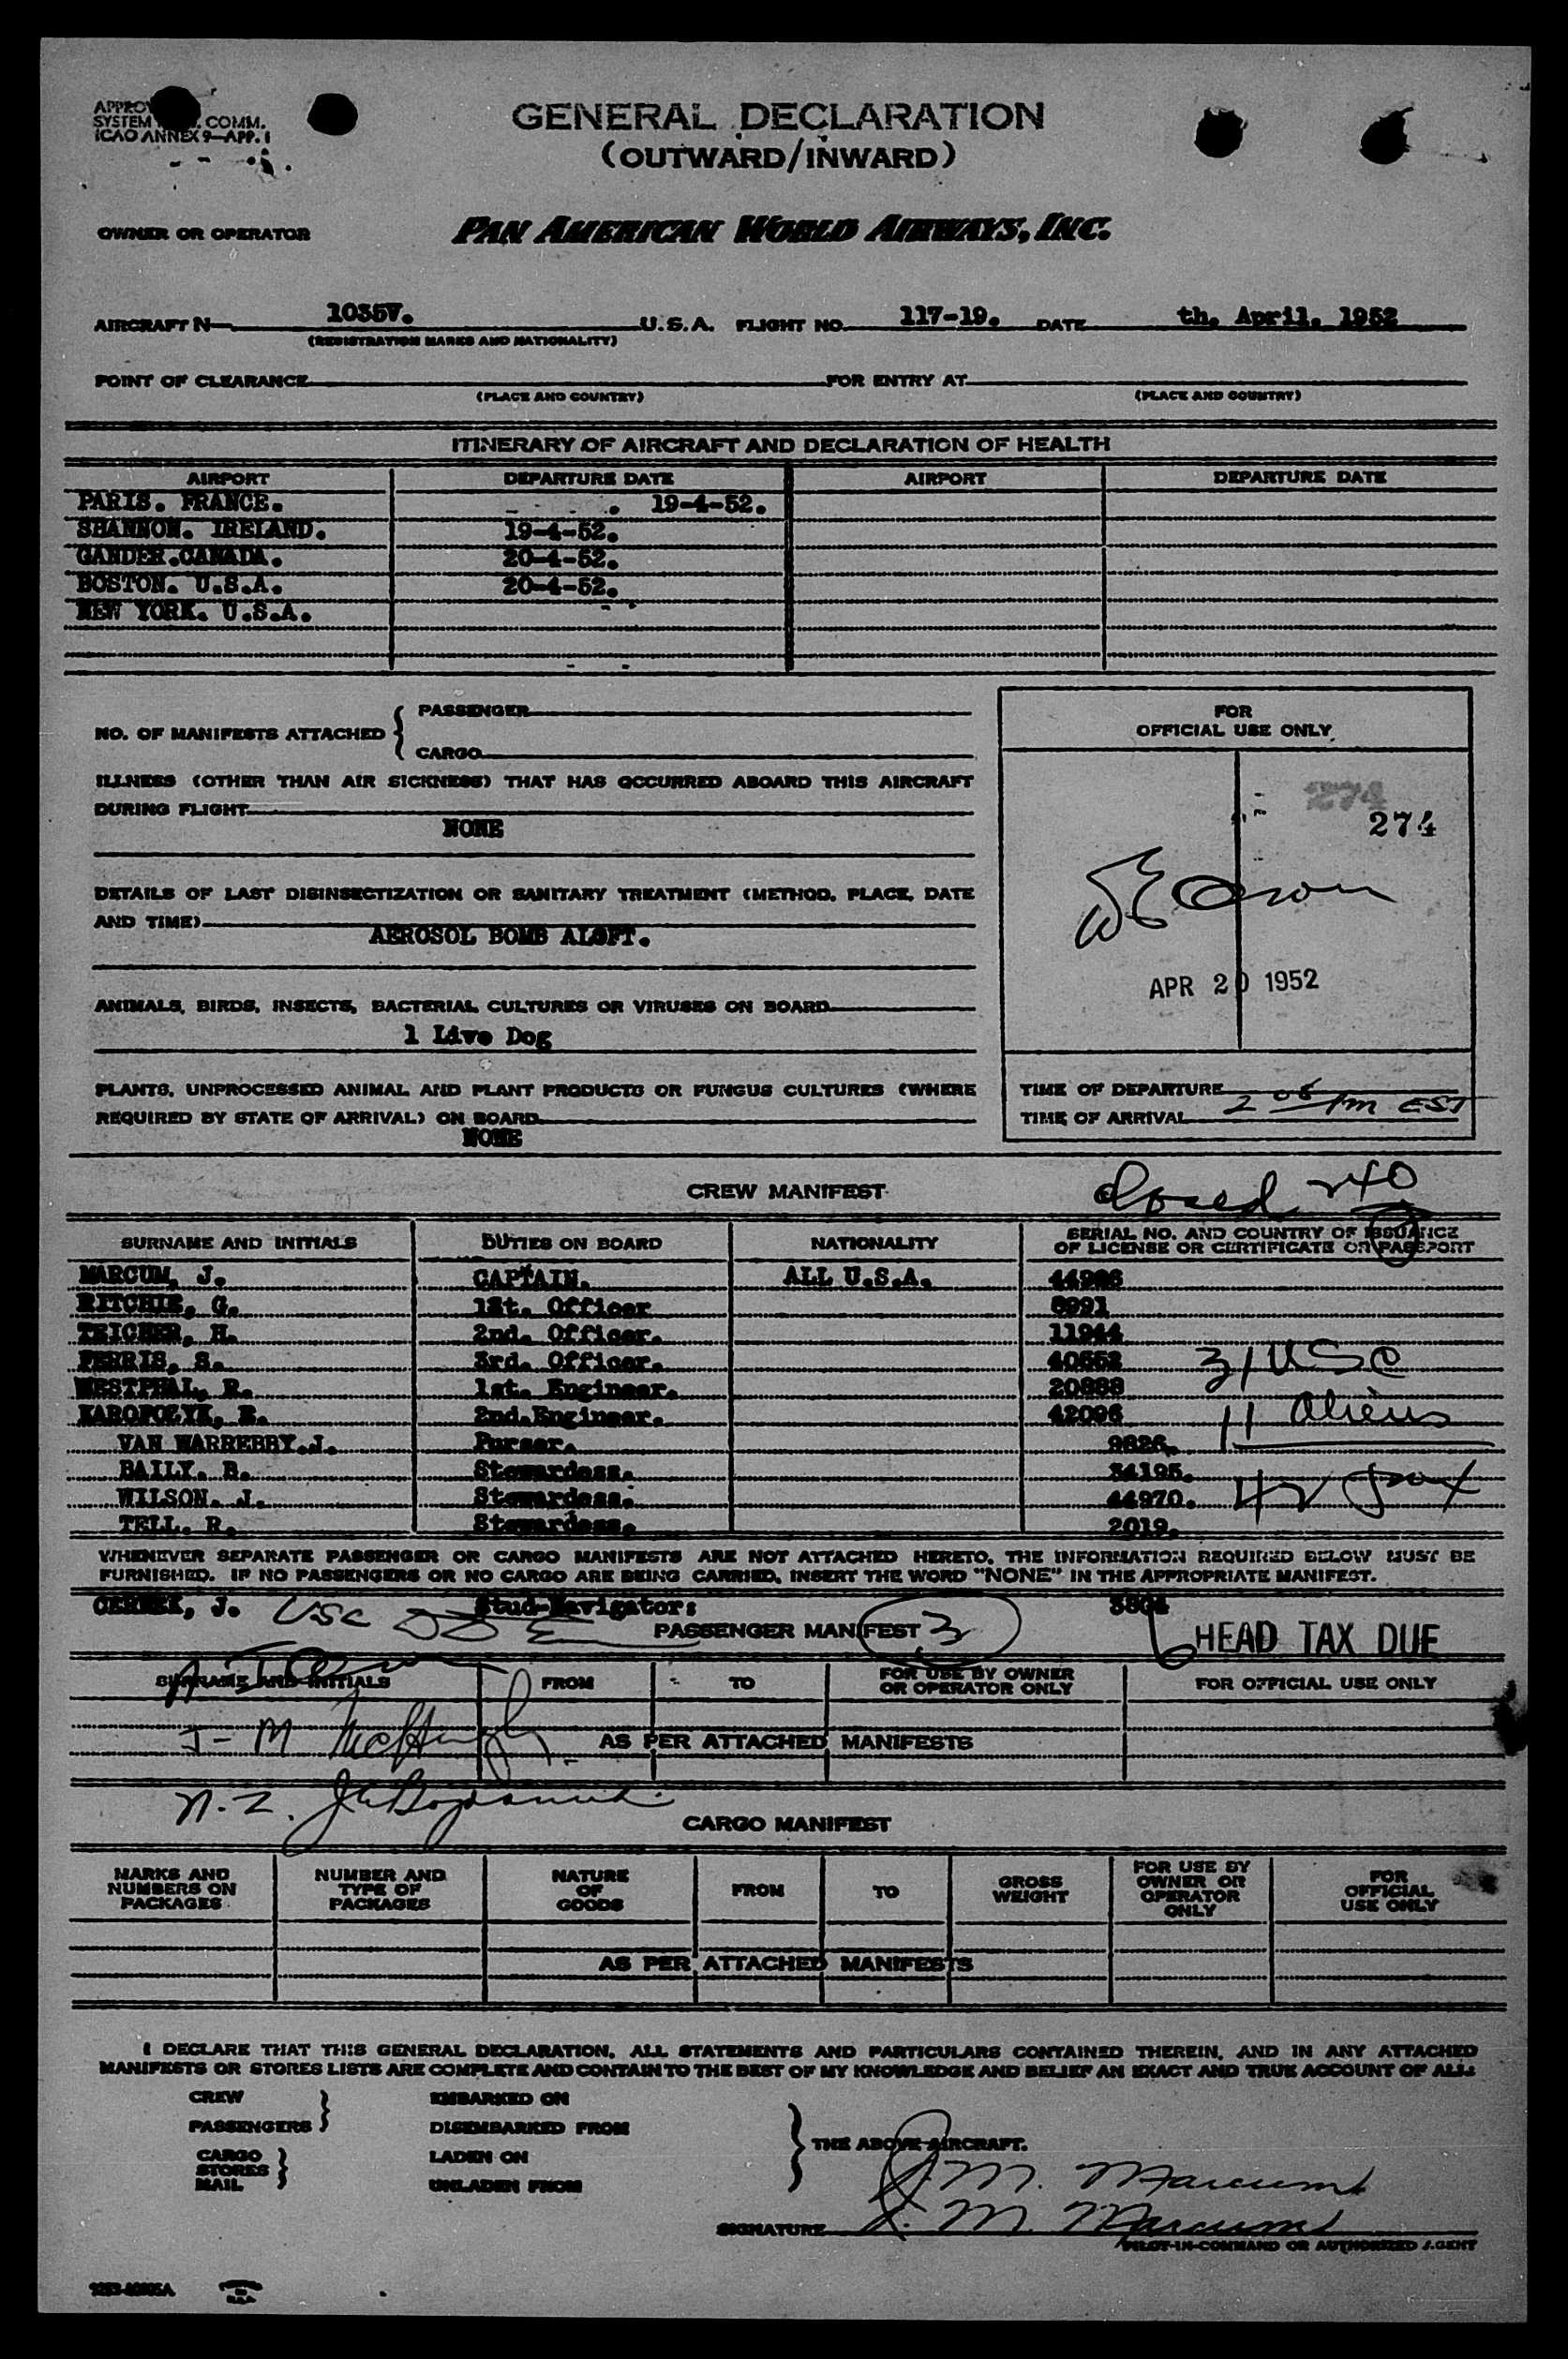 APPRO
SYSTEM COMM.
ICAO ANNEX 9—APP. 1
GENERAL DECLARATION
(OUTWARD/INWARD)
OWNER OR OPERATOR PAN AMERICAN WORLD AIRWAYS, INC.
AIRCRAFT N— 1035V. U.S.A. FLIGHT NO. 117-19. DATE th. April. 1952
(REGISTRATION MARKS AND NATIONALITY)
POINT OF CLEARANCE FOR ENTRY AT
(PLACE AND COUNTRY) (PLACE AND COUNTRY)
ITINERARY OF AIRCRAFT AND DECLARATION OF HEALTH
AIRPORT DEPARTURE DATE AIRPORT DEPARTURE DATE
PARIS. FRANCE. 19-4-52.
SHANNON. IRELAND. 19-4-52.
GANDER.CANADA. 20-4-52.
BOSTON. U.S.A. 20-4-52.
NEW YORK. U.S.A.
NO. OF MANIFESTS ATTACHED { PASSENGER
CARGO
ILLNESS (OTHER THAN AIR SICKNESS) THAT HAS OCCURRED ABOARD THIS AIRCRAFT
DURING FLIGHT
NONE
DETAILS OF LAST DISINSECTIZATION OR SANITARY TREATMENT (METHOD, PLACE, DATE
AND TIME)
AEROSOL BOMB ALOFT.
ANIMALS, BIRDS, INSECTS, BACTERIAL CULTURES OR VIRUSES ON BOARD
1 Live Dog
PLANTS, UNPROCESSED ANIMAL AND PLANT PRODUCTS OR FUNGUS CULTURES (WHERE
REQUIRED BY STATE OF ARRIVAL) ON BOARD
NONE
FOR
OFFICIAL USE ONLY
274
274
APR 20 1952
TIME OF DEPARTURE
TIME OF ARRIVAL 2 06 Pm EST
CREW MANIFEST
Closed 240
SURNAME AND INITIALS DUTIES ON BOARD NATIONALITY SERIAL NO. AND COUNTRY OF ISSUANCE
OF LICENSE OR CERTIFICATE OR PASSPORT
MARCUM, J. CAPTAIN. ALL U.S.A. 44986
RITCHIE, G. 1St. Officer 8991
TEICHER, H. 2nd. Officer. 11944
FERRIS, S. 3rd. Officer. 40552 31 USC
WESTPHAL, R. 1st. Engineer. 20888
2nd.Engineer. 42096 11 Aliens
VAN WARREBBY.J. Purser. 9826.
BAILY. B. Stewardess. 34195.
WILSON. J. Stewardess. 44970. 42
TELL. R. Stewardess. 2019.
WHENEVER SEPARATE PASSENGER OR CARGO MANIFESTS ARE NOT ATTACHED HERETO, THE INFORMATION REQUIRED BELOW MUST BE
FURNISHED. IF NO PASSENGERS OR NO CARGO ARE BEING CARRIED, INSERT THE WORD "NONE" IN THE APPROPRIATE MANIFEST.
CERNEK, J. USC Stud-Navigator: 3804
PASSENGER MANIFEST 3 6 HEAD TAX DUE
SURNAME AND INITIALS FROM TO FOR USE BY OWNER
OR OPERATOR ONLY FOR OFFICIAL USE ONLY
J-M McHugh
AS PER ATTACHED MANIFESTS
CARGO MANIFEST
MARKS AND
NUMBERS ON
PACKAGES NUMBER AND
TYPE OF
PACKAGES NATURE
OF
GOODS FROM TO GROSS
WEIGHT FOR USE BY
OWNER OR
OPERATOR
ONLY FOR
OFFICIAL
USE ONLY
AS PER ATTACHED MANIFESTS
I DECLARE THAT THIS GENERAL DECLARATION, ALL STATEMENTS AND PARTICULARS CONTAINED THEREIN, AND IN ANY ATTACHED
MANIFESTS OR STORES LISTS ARE COMPLETE AND CONTAIN TO THE BEST OF MY KNOWLEDGE AND BELIEF AN EXACT AND TRUE ACCOUNT OF ALL:
CREW EMBARKED ON
PASSENGERS DISEMBARKED FROM
THE ABOVE AIRCRAFT.
CARGO LADEN ON
STORES
MAIL UNLADEN FROM
J. M. Marcum
SIGNATURE J. M. Marcum
PILOT-IN-COMMAND OR AUTHORIZED AGENT